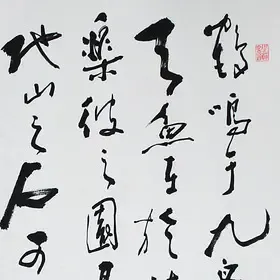 鶴鳴于九
天魚在於
樂彼之園
他山之石可